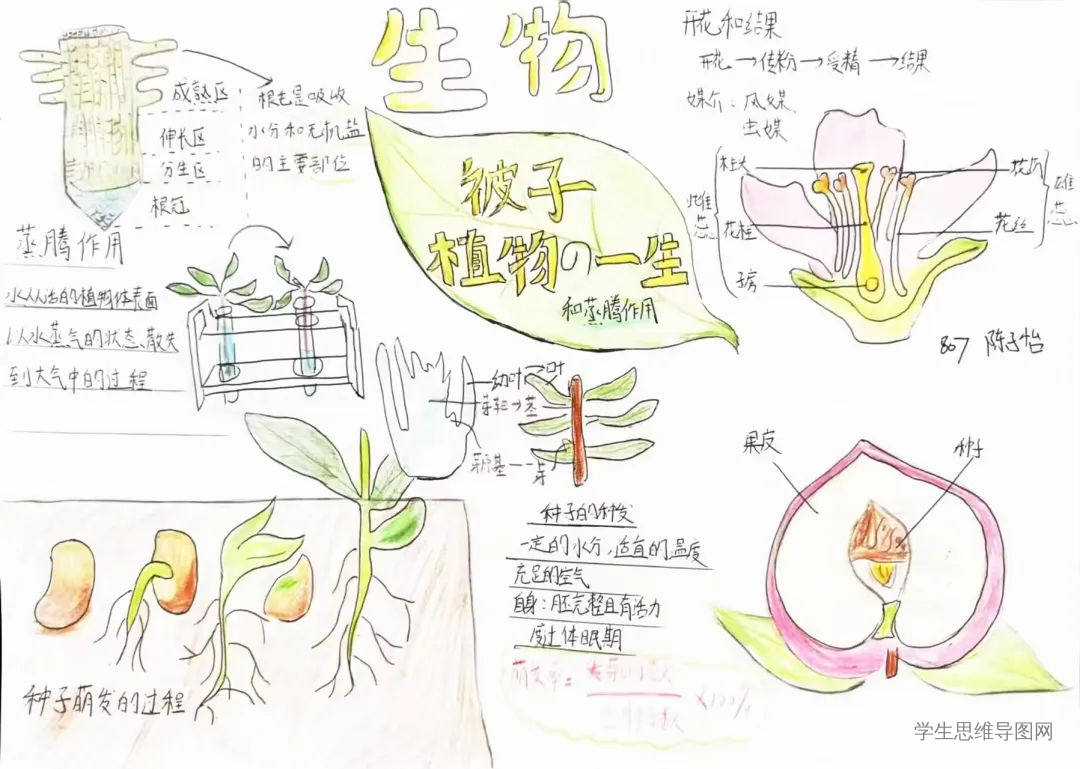 生物
被子
植物の一生
和蒸腾作用
成熟区
伸长区
分生区
根冠
根毛是吸收
水分和无机盐
的主要部位
蒸腾作用
水从活的植物体表面
以水蒸气的状态散失
到大气中的过程
开花和结果
开花→传粉→受精→结果
媒介：风媒
虫媒
柱头
花柱
子房
雌蕊
花丝
雄蕊
807 陈子怡
幼叶→叶
芽轴→茎
芽原基—芽
果皮
种子
种子的种发
一定的水分，适宜的温度
充足的空气
自身：胚完整且有活力
度过体眠期
萌发率=
×100%
种子萌发的过程
学生思维导图网